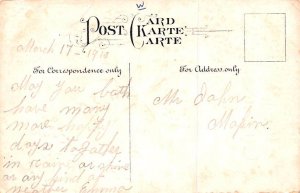 W
POST CARD
KARTE
CARTE
March 17 - 1910
For Correspondence only
For Address only.
May you both
have many
more happy
days to gather
in Rain or shine
or any kind of
weather Emma
Mr John